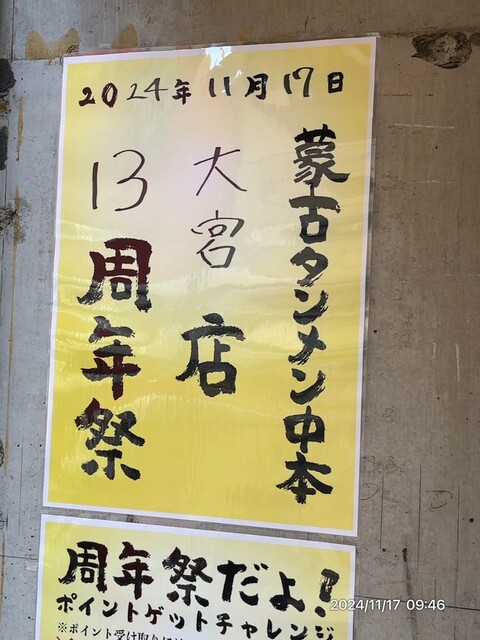 2024年11月17日
蒙古タンメン中本
大宮店
13周年祭
周年祭だよ!
ポイントゲットチャレンジ
※ポイント受け取り
2024/11/17 09:46